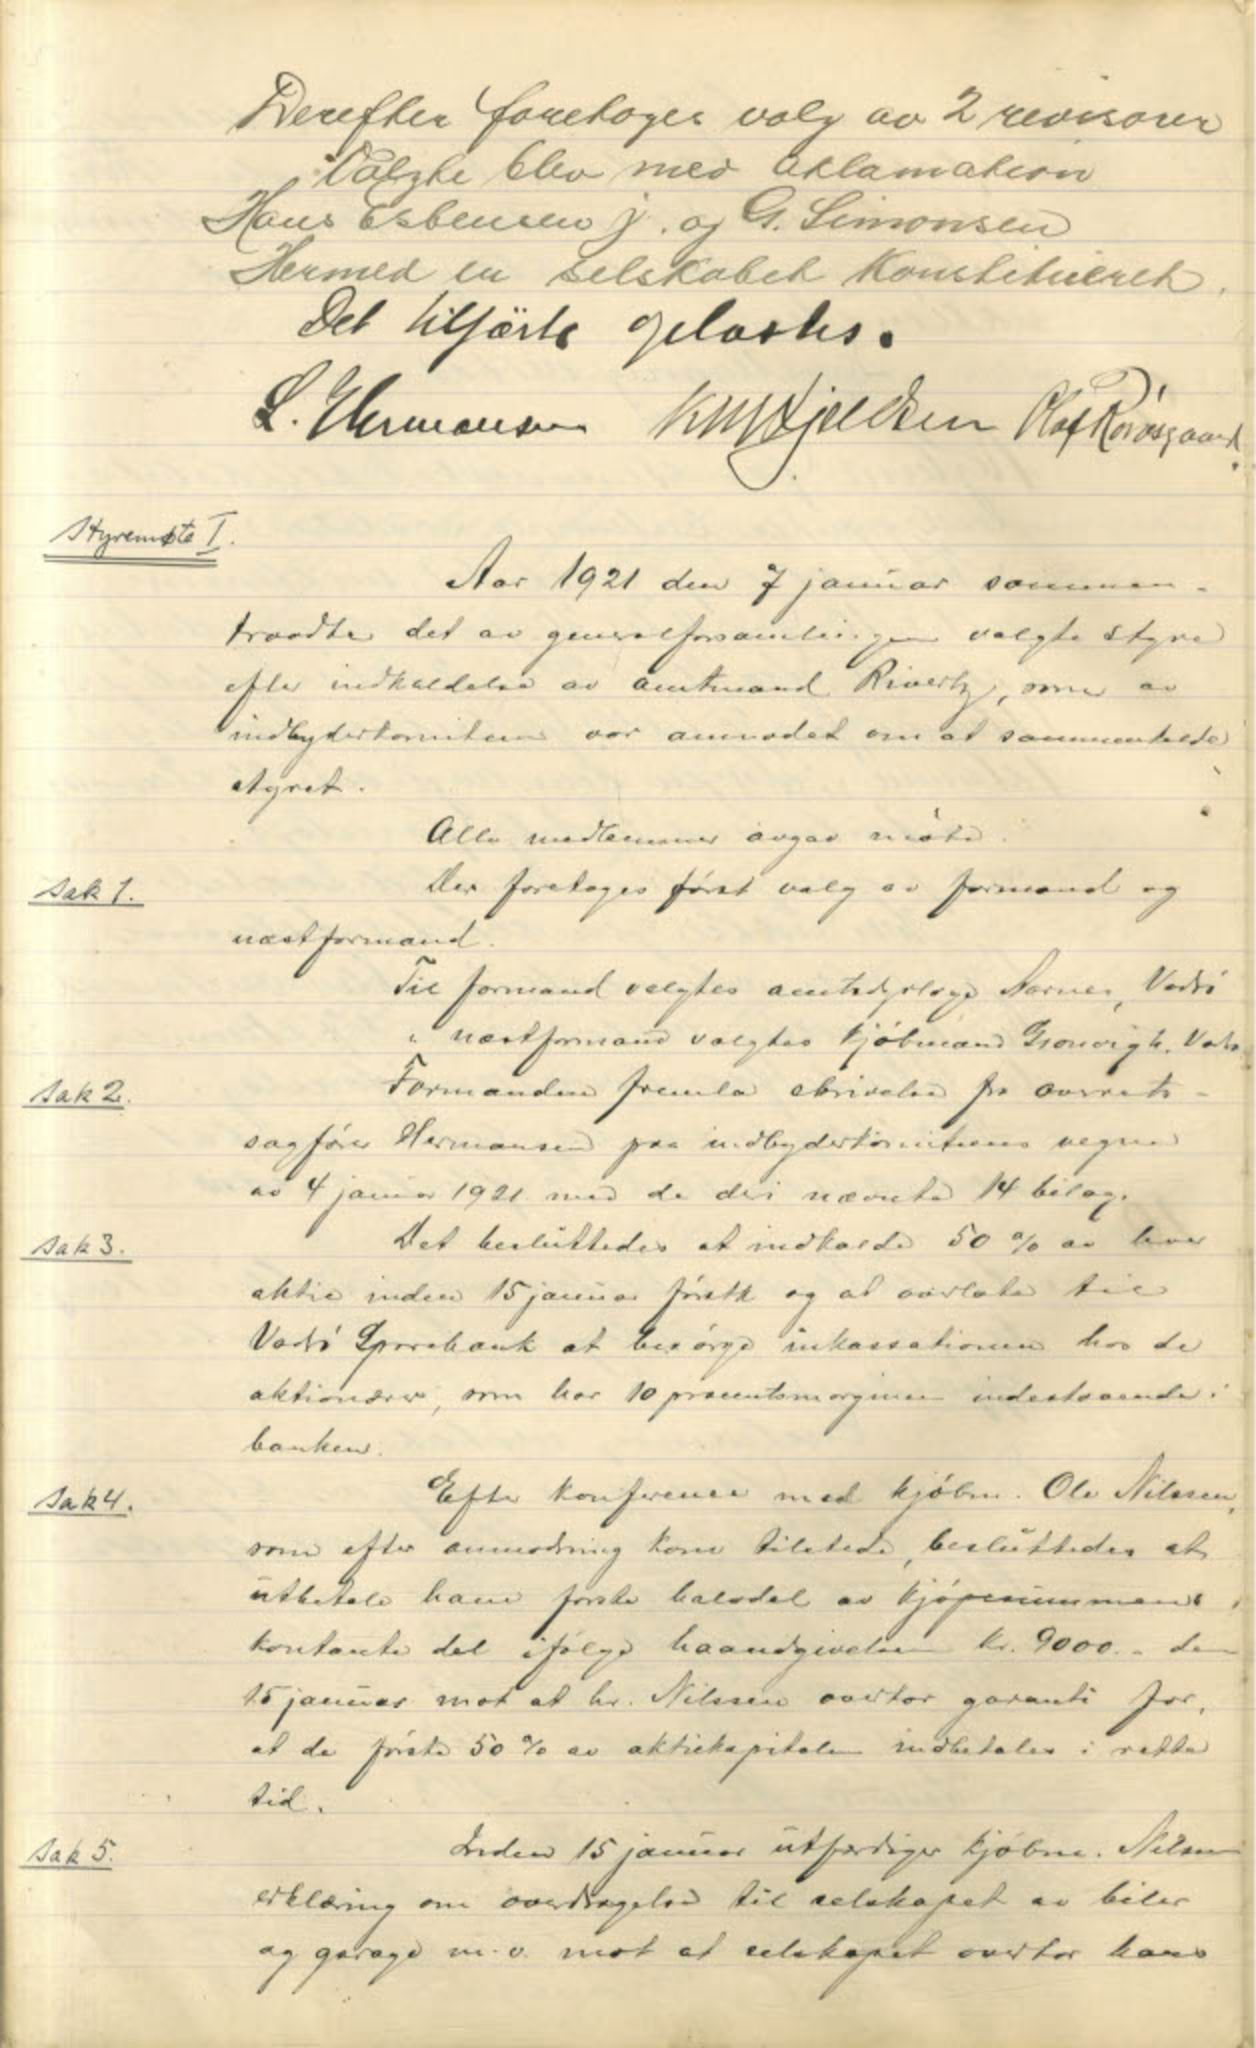 Derefter foretoges valg av 2 revisorer
Valgte blev med aklamation
Hans Esbensen j. og G. Simonsen
Hermed er selskabet Konstitueret.
Det tilførte oplæstes.
L. Hermansen Olaf
Styremøte I.
Aar 1921 den 7 januar sammen-
traadte det av generalforsamlingen valgte styre
efter indkaldelse av amtmand Rivertz, som av
indbyderkomiteen var anmodet om at sammenkalde
styret.
Alle medlemmer avgav møte.
Sak 1.
Der foretoges først valg av formand og
næstformand.
Til formand valgtes amtsdyrlæge Aarnes, Vadsö
" næstformand valgtes kjøbmand Gronvigh. Vadsö
Sak 2.
Formanden fremla skrivelse fra overrets-
sagfører Hermansen paa indbyderkomiteens vegne
av 4 januar 1921 med de deri nævnte 14 bilag.
Sak 3.
Det besluttedes at indkalde 50 % av hver
aktie inden 15 januar førstk og at overlate til
Vadsö Sparebank at besørge inkassationen hos de
aktionærer, som har 10 procentsmarginen indestaaende i
banken.
Sak 4.
Efter konference med kjøbm. Ole Nilssen,
som efter anmodning kom tilstede, besluttedes at
utbetale ham første halvdel av kjøpesummens
kontante del ifølge haandgivelsen kr. 9000.- den
15 januar mot at hr. Nilssen overtar garanti for,
at de første 50 % av aktiekapitalen indbetales i rette
tid.
Sak 5.
Inden 15 januar utfærdiger kjøbm. Nilssen
erklæring om overdragelse til selskapet av biler
og garage m.v. mot at selskapet overtar hans